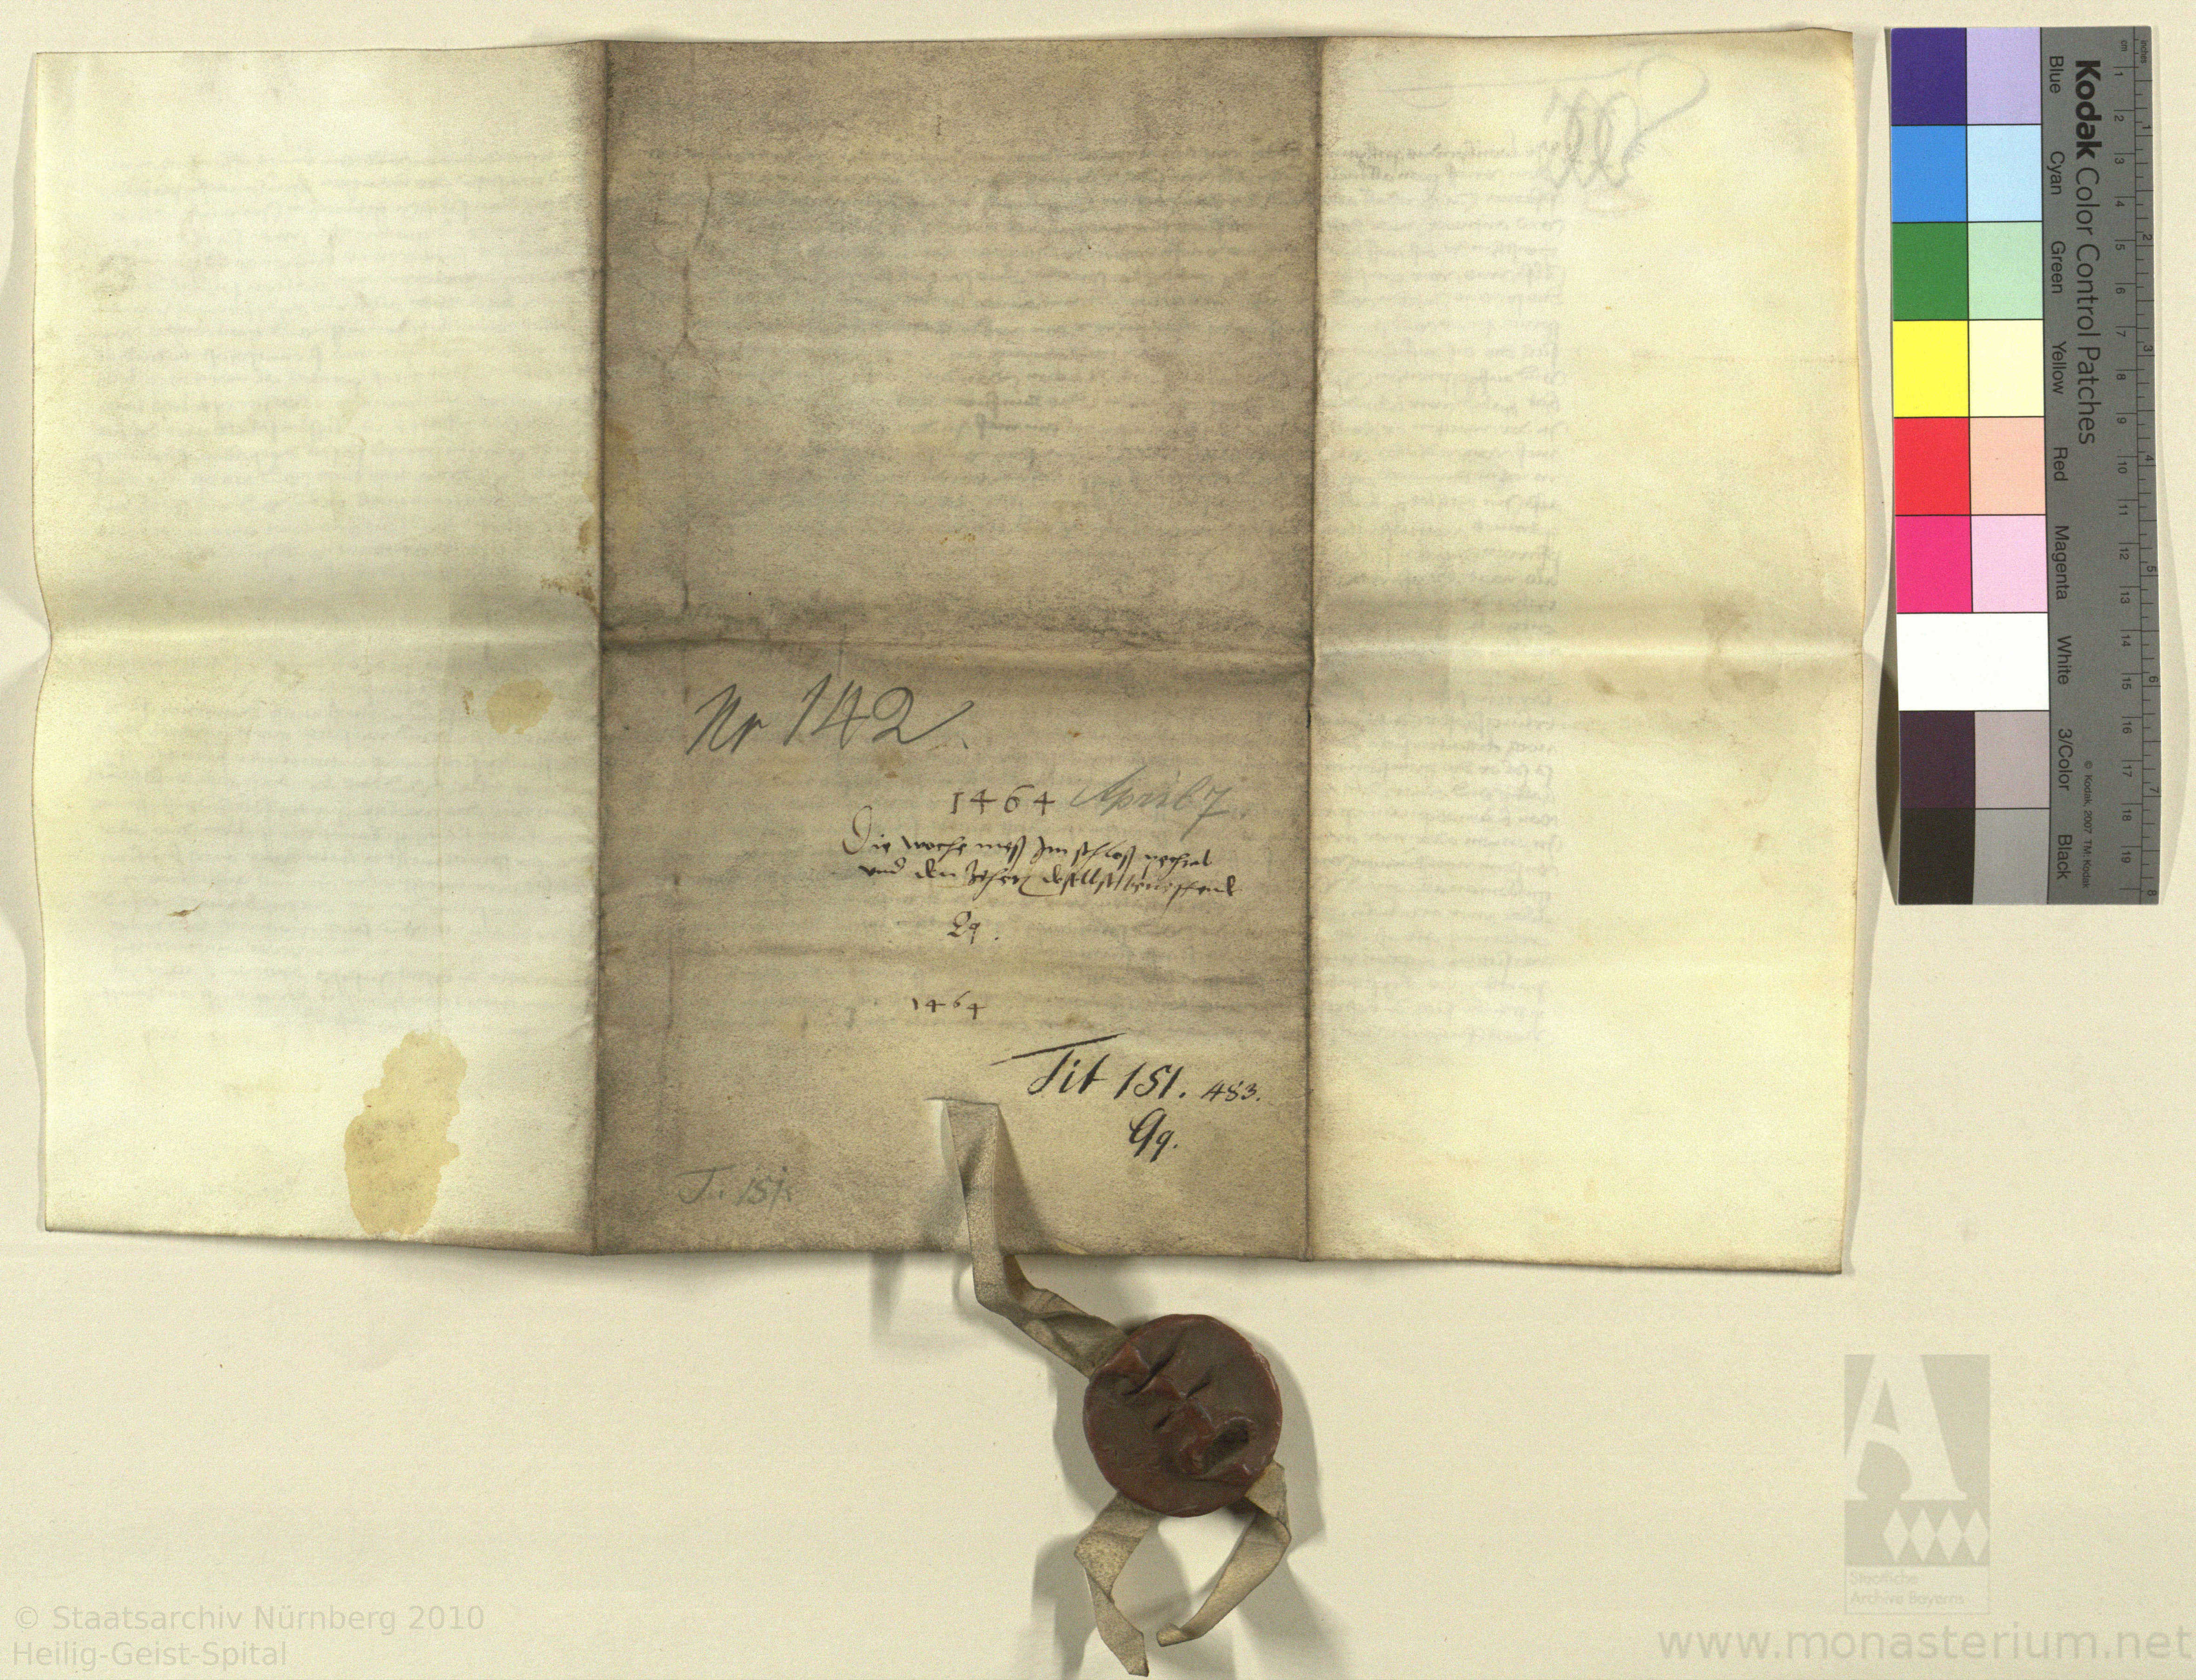 Nr 142
1464 April 7.
Die woche mess Im schloss
und den Zehent daselbst
Qq.
1464
Tit 151. 483.
Qq.
T. 151.
Kodak Color Control Patches
Blue Cyan Green Yellow Red Magenta White 3/Color Black
© Kodak, 2007 TM: Kodak
cm 1 2 3 4 5 6 7 8 9 10 11 12 13 14 15 16 17 18 19
inches 1 2 3 4 5 6 7 8
Staatliche
Archive Bayerns
© Staatsarchiv Nürnberg 2010
Heilig-Geist-Spital
www.monasterium.net